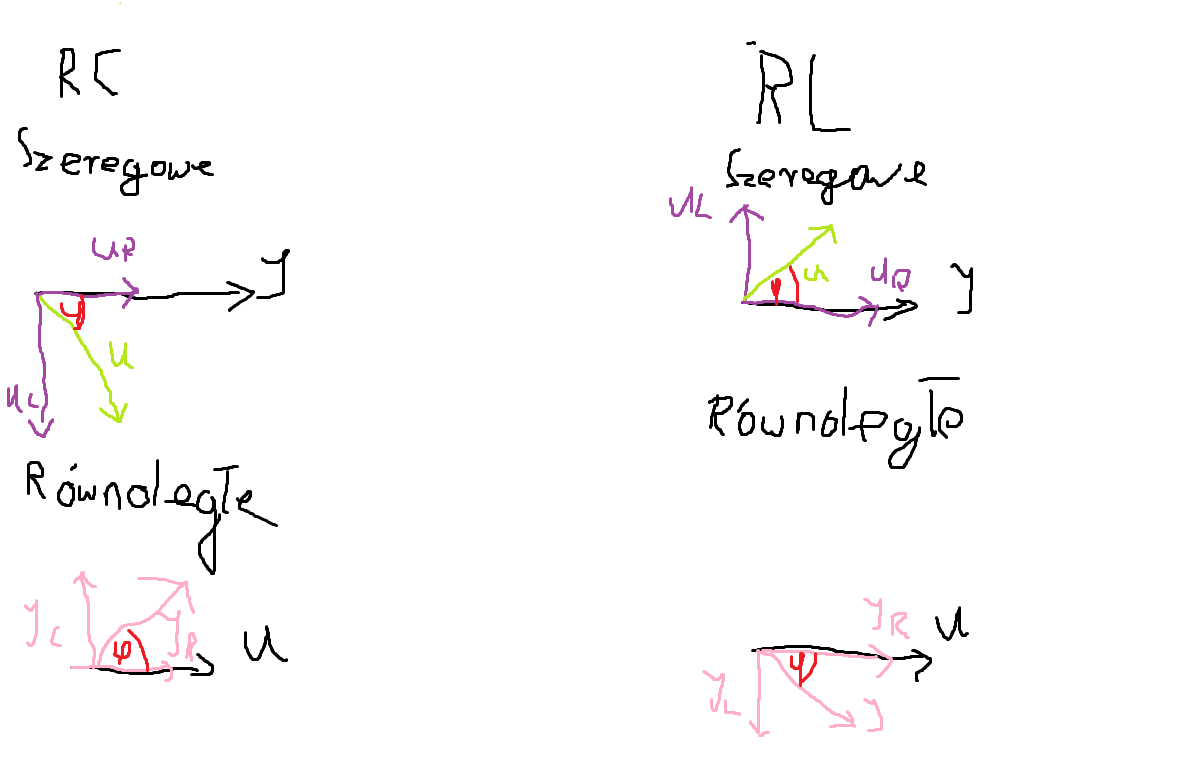 RC
Szeregowe
UR
J
φ
U
UC
Równoległe
JC
JR
φ
U
RL
Szeregowe
UL
U
UR
J
φ
Równoległe
JR
U
φ
JL
J